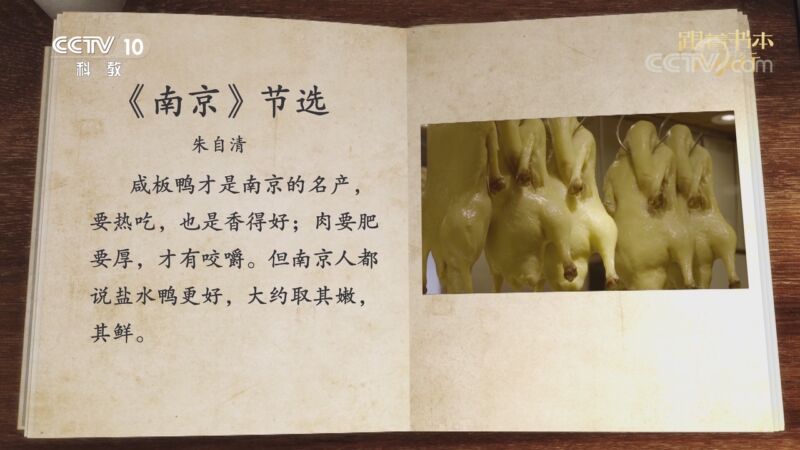 CCTV 10
科教
跟着书本
CCTV.com
《南京》节选
朱自清
咸板鸭才是南京的名产，
要热吃，也是香得好；肉要肥
要厚，才有咬嚼。但南京人都
说盐水鸭更好，大约取其嫩，
其鲜。